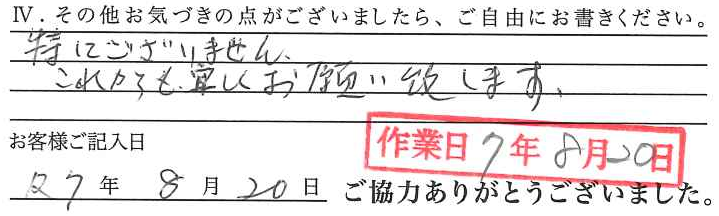 Ⅳ．その他お気づきの点がございましたら、ご自由にお書きください。
特にございません、
これからも、宜しくお願い致します、
お客様ご記入日
作業日 7年 8月20日
R7 年 8 月 20 日 ご協力ありがとうございました。